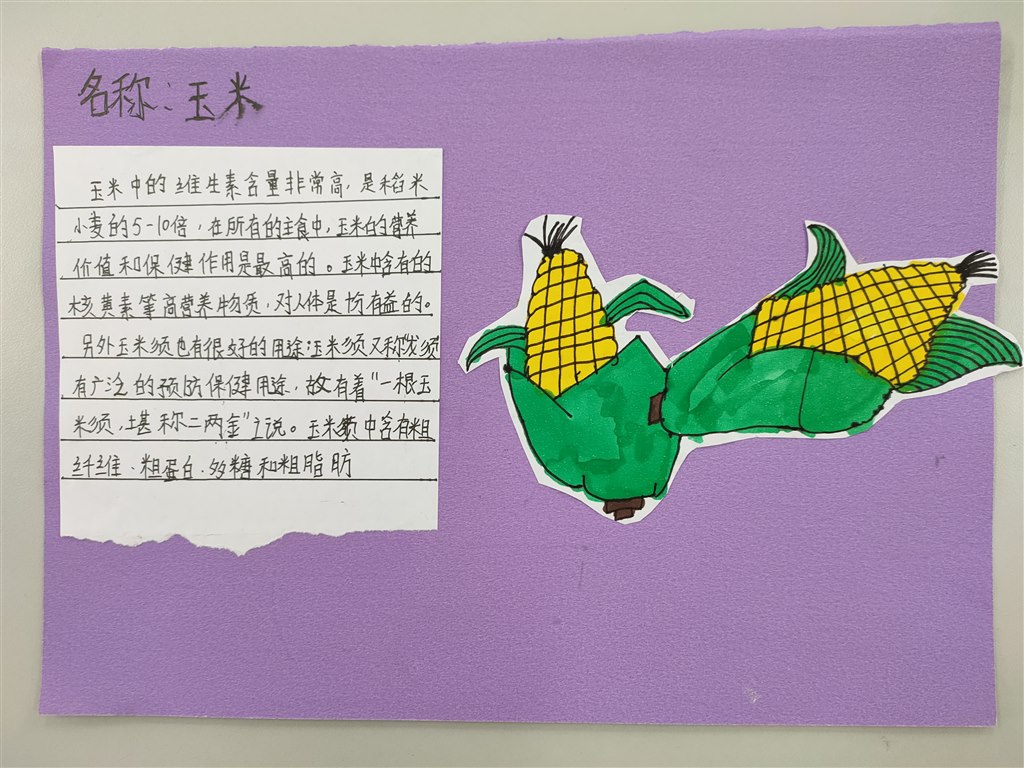 名称:玉米
玉米中的维生素含量非常高,是稻米
小麦的5-10倍,在所有的主食中,玉米的营养
价值和保健作用是最高的。玉米中含有的
核黄素等高营养物质,对人体是均有益的。
另外玉米须也有很好的用途:玉米须又称龙须
有广泛的预防保健用途,故有着"一根玉
米须,堪称二两金"之说。玉米须中含有粗
纤维、粗蛋白、多糖和粗脂肪